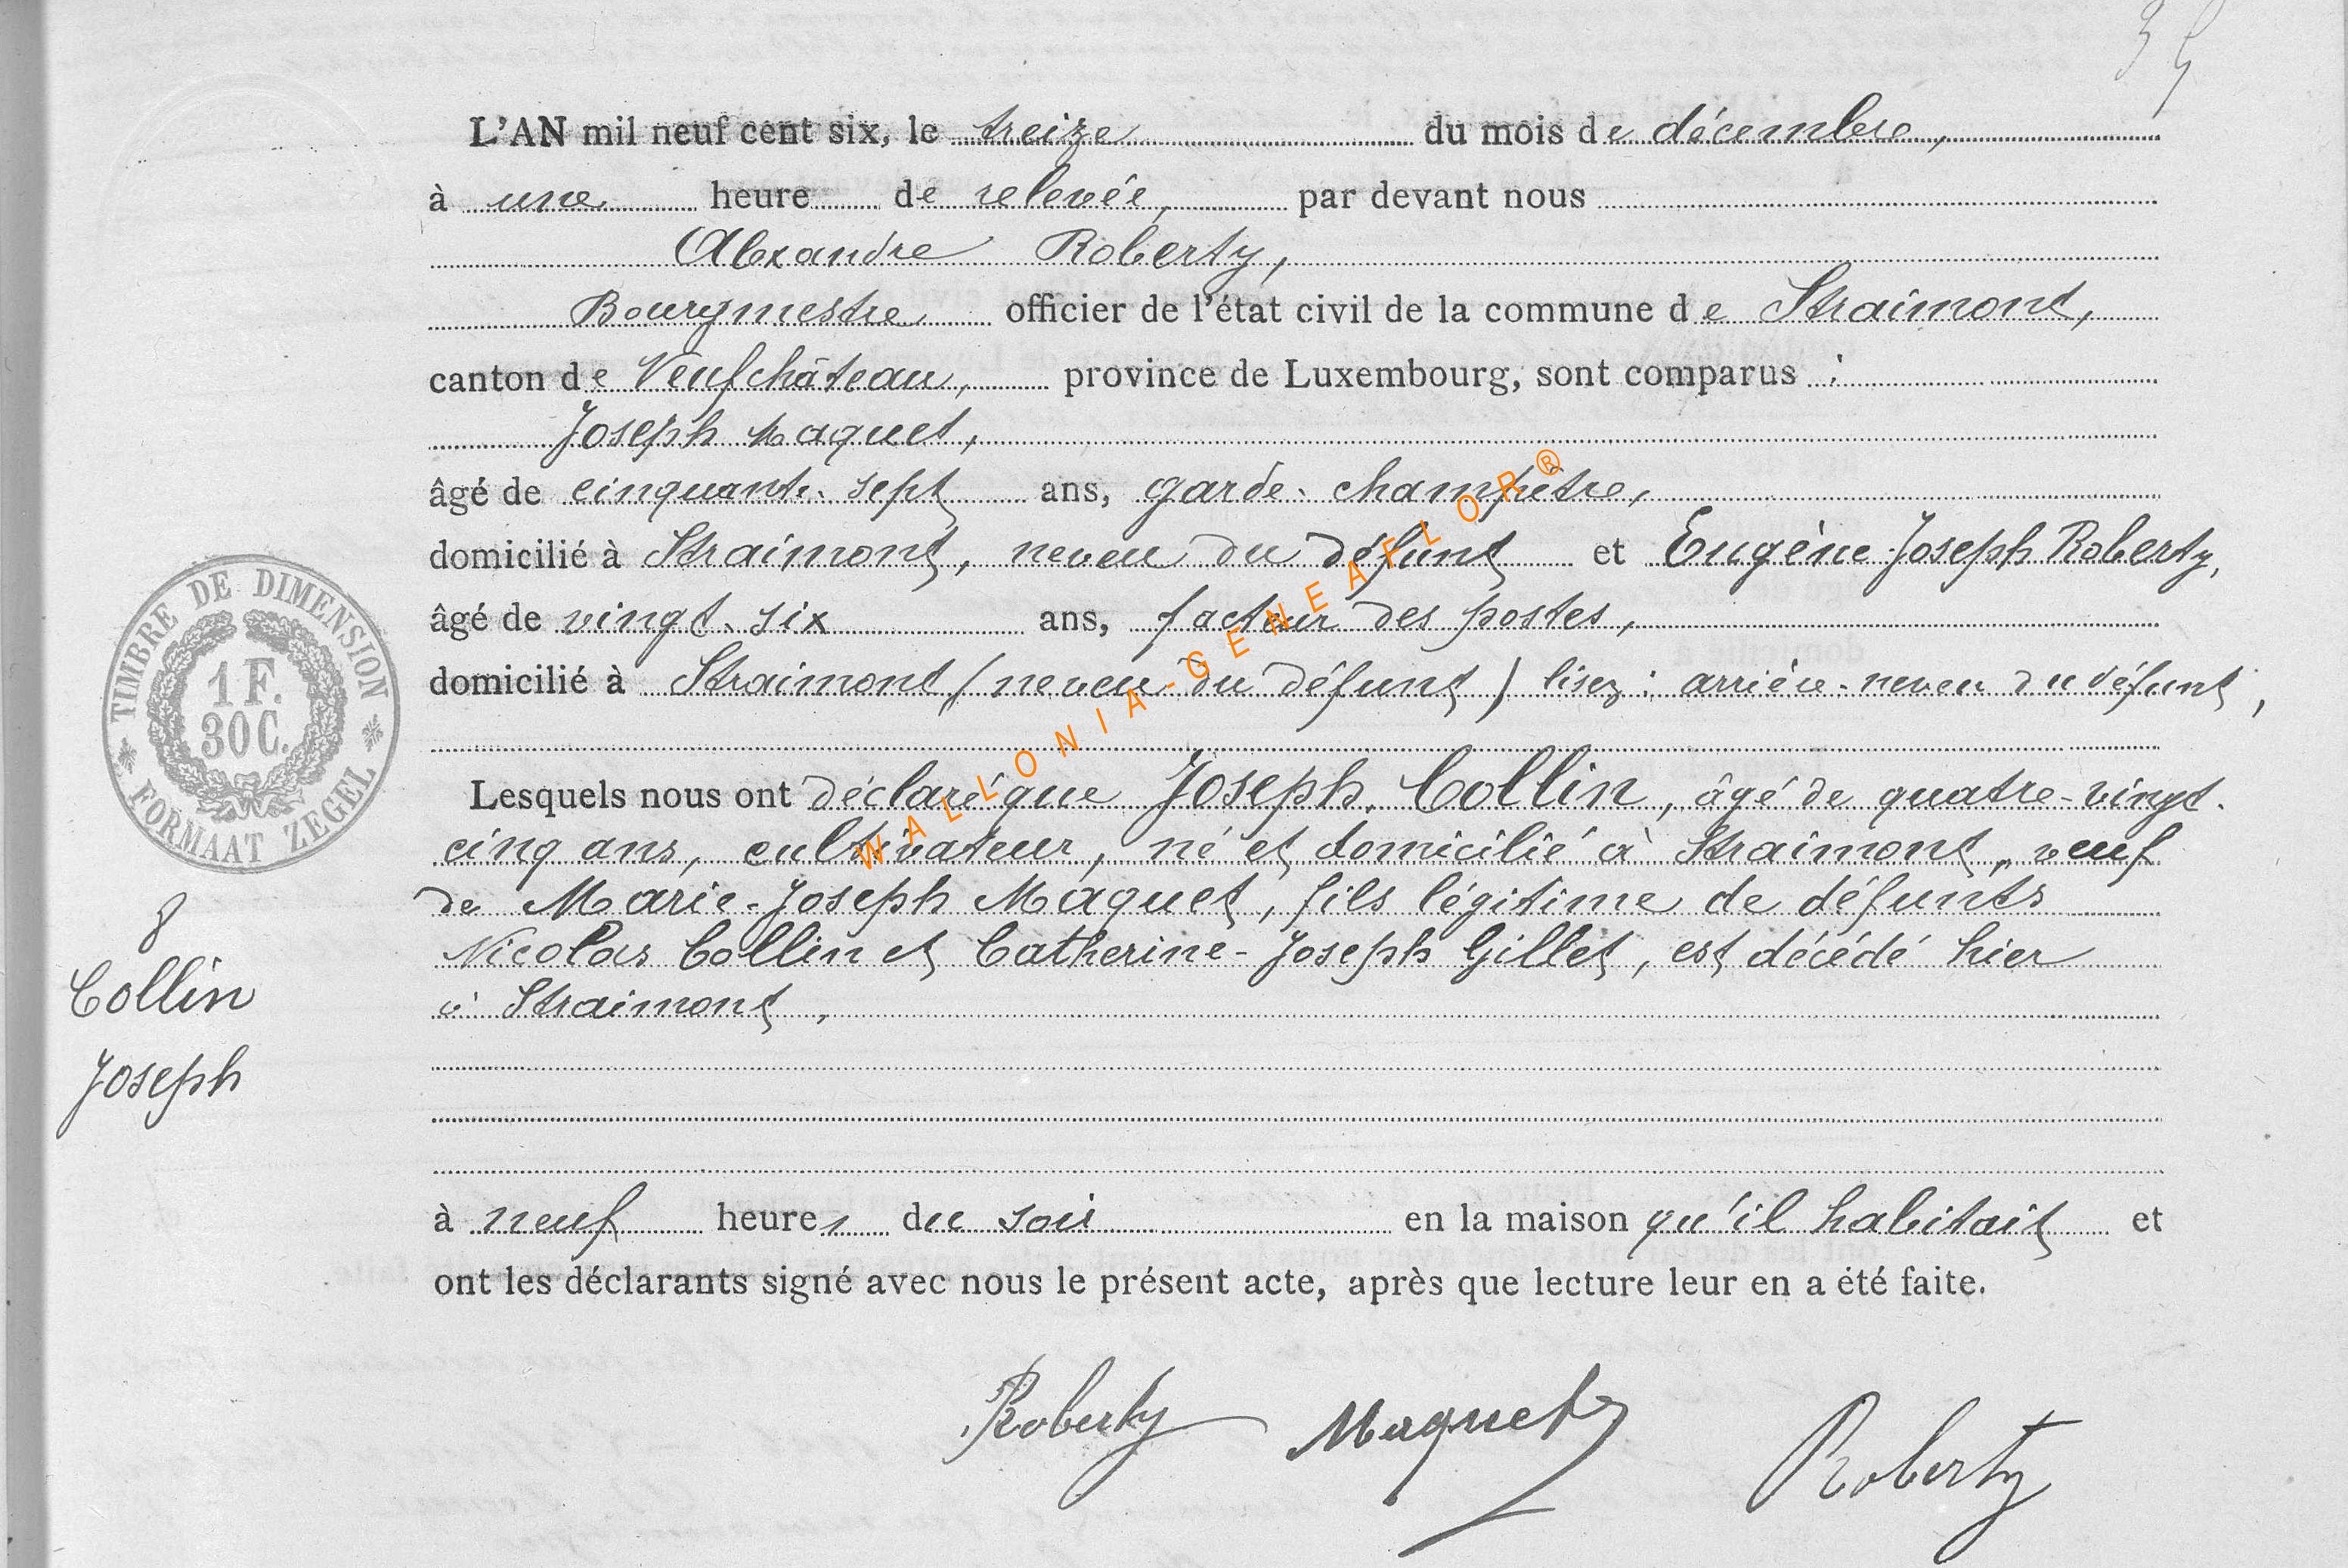 35
L'AN mil neuf cent six, le treize du mois de décembre,
à une heure de relevée, par devant nous
Alexandre Roberty,
Bourgmestre officier de l'état civil de la commune de Straimont,
canton de Neufchâteau, province de Luxembourg, sont comparus :
Joseph Maquet,
âgé de cinquante-sept ans, garde-champêtre,
domicilié à Straimont, neveu du défunt et Eugène-Joseph Roberty,
âgé de vingt-six ans, facteur des postes,
domicilié à Straimont (neveu du défunt) lisez : arrière-neveu du défunt,
Lesquels nous ont déclaré que Joseph Collin, âgé de quatre-vingt-
cinq ans, cultivateur, né et domicilié à Straimont, veuf
de Marie-Joseph Maquet, fils légitime de défunts
Nicolas Collin et Catherine-Joseph Gillet, est décédé hier
à Straimont,
à neuf heures du soir en la maison qu'il habitait et
ont les déclarants signé avec nous le présent acte, après que lecture leur en a été faite.
Roberty Maquet Roberty
TIMBRE DE DIMENSION
1 F.
30 C.
FORMAAT ZEGEL
8
Collin
Joseph
WALLONIA-GENEAFLOR®